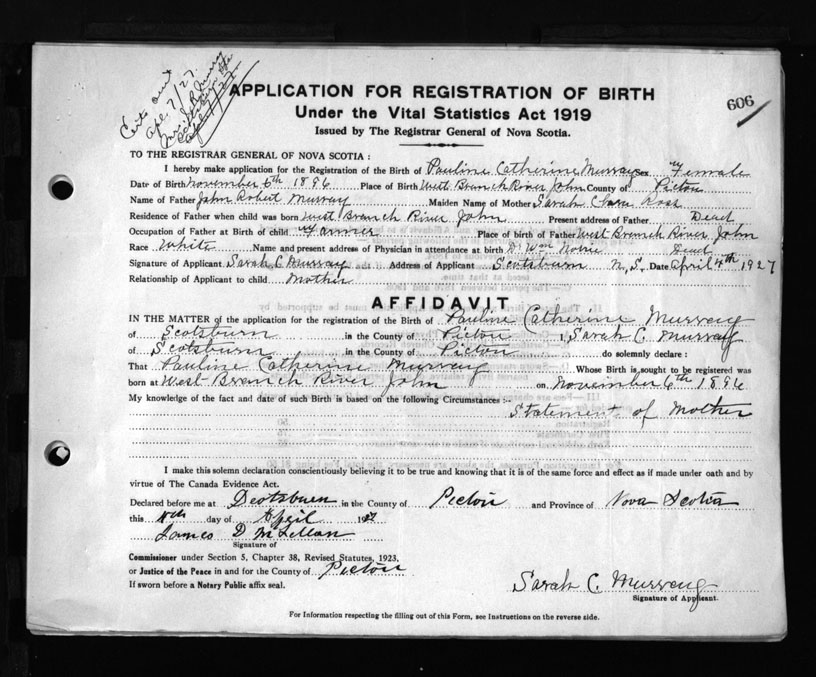 Certs sent
Apr. 7/27.
606
APPLICATION FOR REGISTRATION OF BIRTH
Under the Vital Statistics Act 1919
Issued by The Registrar General of Nova Scotia.
TO THE REGISTRAR GENERAL OF NOVA SCOTIA :
I hereby make application for the Registration of the Birth of Pauline Catherine Murray Sex Female
Date of Birth November 6th 1896 Place of Birth West Branch River John County of Pictou
Name of Father John Robert Murray Maiden Name of Mother Sarah Ross
Residence of Father when child was born West Branch River John Present address of Father Dead
Occupation of Father at Birth of child Farmer Place of birth of Father West Branch River John
Race White Name and present address of Physician in attendance at birth Dr Wm Dead
Signature of Applicant Sarah C Murray Address of Applicant Scotsburn N.S. Date April 4th 1927
Relationship of Applicant to child Mother
AFFIDAVIT
IN THE MATTER of the application for the registration of the Birth of Pauline Catherine Murray
of Scotsburn in the County of Pictou I, Sarah C. Murray
of Scotsburn in the County of Pictou do solemnly declare :
That Pauline Catherine Murray Whose Birth is sought to be registered was
born at West Branch River John on November 6th 1896
My knowledge of the fact and date of such Birth is based on the following Circumstances :-
Statement of Mother
I make this solemn declaration conscientiously believing it to be true and knowing that it is of the same force and effect as if made under oath and by
virtue of The Canada Evidence Act.
Declared before me at Scotsburn in the County of Pictou and Province of Nova Scotia
this 4th day of April 1927
James D McLellan
Signature of
Commissioner under Section 5, Chapter 38, Revised Statutes, 1923,
or Justice of the Peace in and for the County of Pictou
If sworn before a Notary Public affix seal.
Sarah C. Murray
Signature of Applicant.
For Information respecting the filling out of this Form, see Instructions on the reverse side.